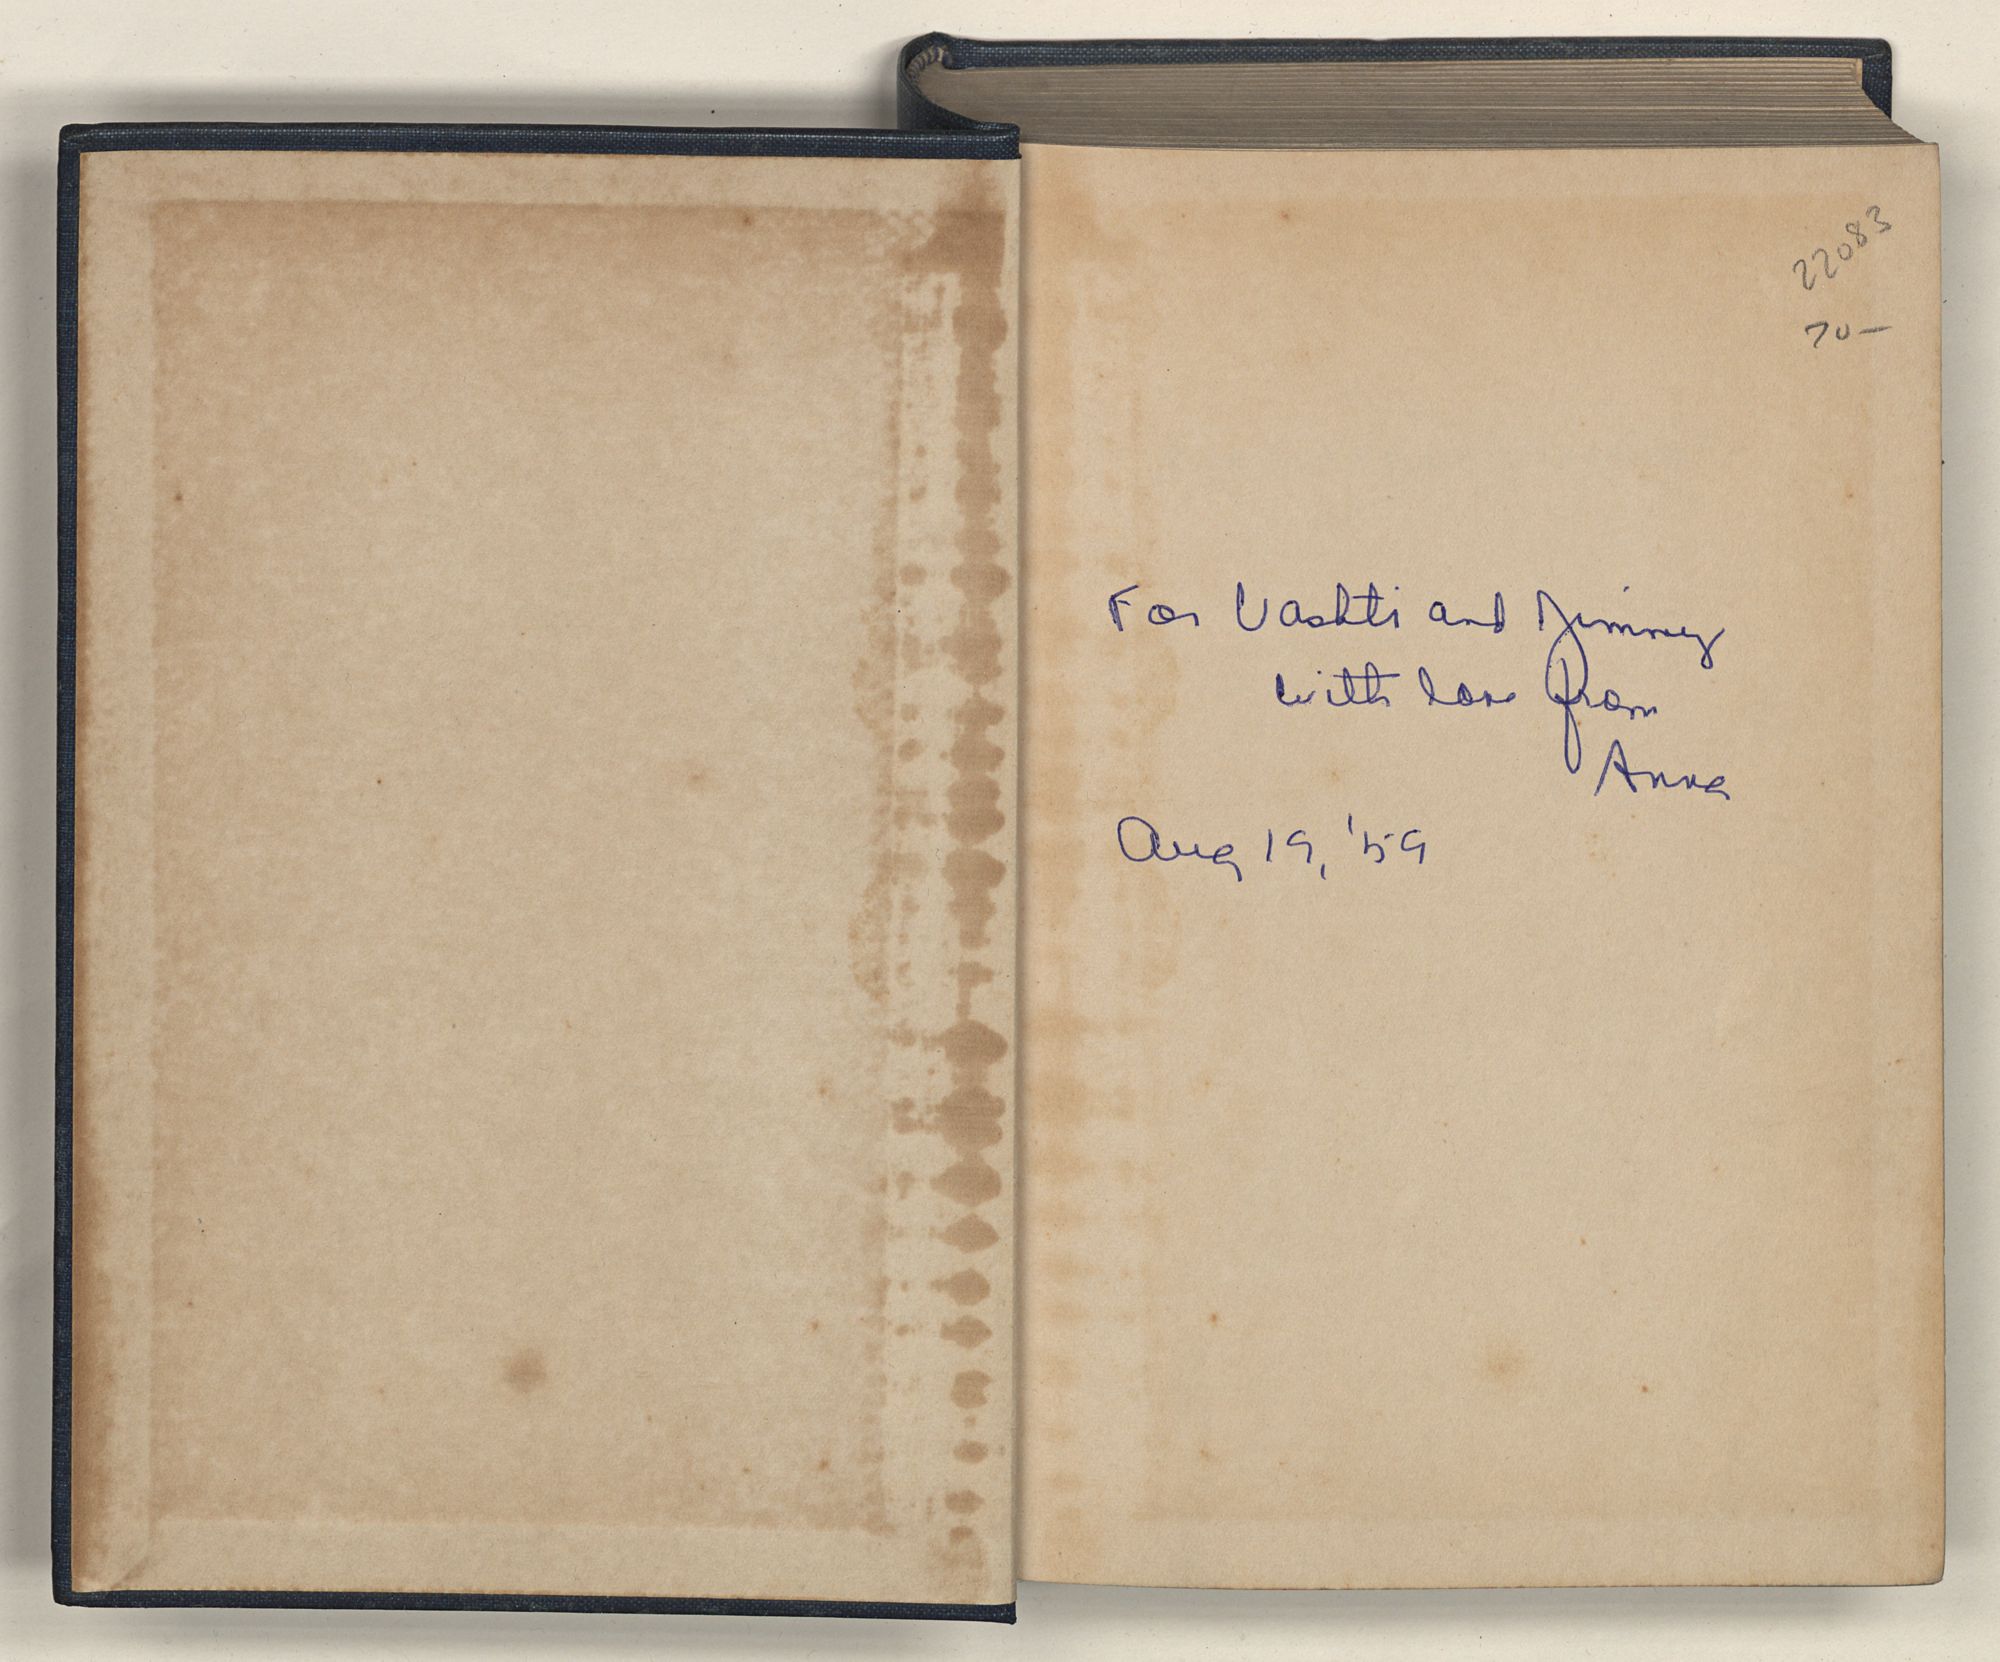 22083
70—
For Vashti and Jimmy
with love from
Anna
Aug 19, '59